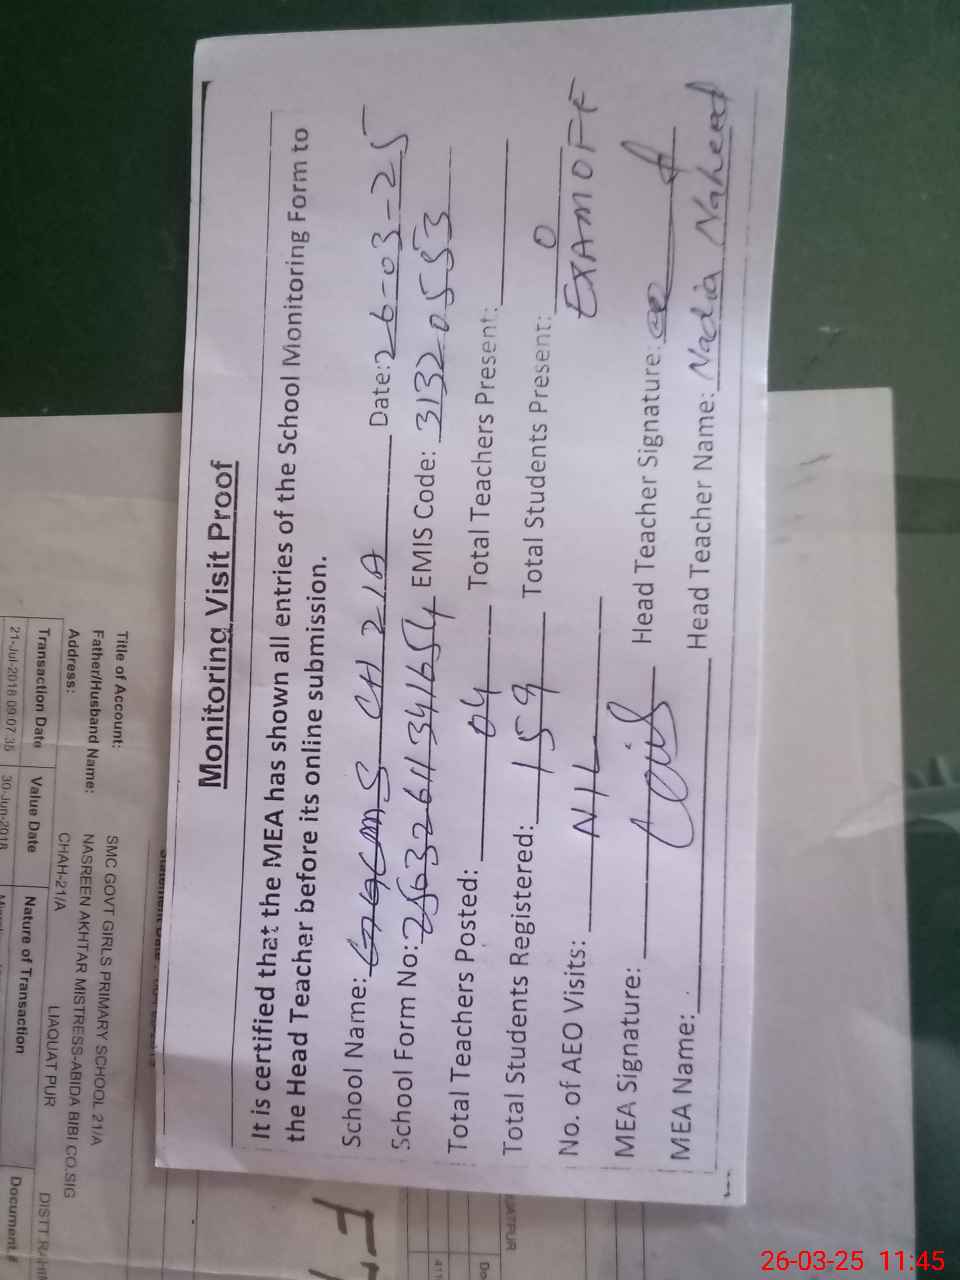 Monitoring Visit Proof
It is certified that the MEA has shown all entries of the School Monitoring Form to
the Head Teacher before its online submission.
School Name: GGCMS CH 21A Date: 26-03-25
School Form No: EMIS Code: 31320553
Total Teachers Posted: 04 Total Teachers Present:
Total Students Registered: 159 Total Students Present: 0
No. of AEO Visits: NIL EXAM OFF
MEA Signature: Head Teacher Signature:
MEA Name: Head Teacher Name: Nadia Naheed
Title of Account: SMC GOVT GIRLS PRIMARY SCHOOL 21/A
Father/Husband Name: NASREEN AKHTAR MISTRESS-ABIDA BIBI CO.SIG
Address: CHAH-21/A LIAQUAT PUR DISTT
Transaction Date Value Date Nature of Transaction Document #
21-Jul-2018 09:07:35 30-Jun-2018
26-03-25 11:45